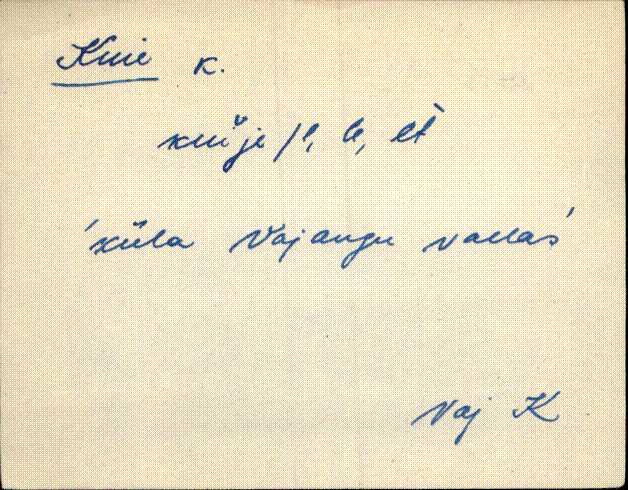 Kuie k.
kuĭje /l, le, lt
'küla Vajangu vallas'
Vaj K